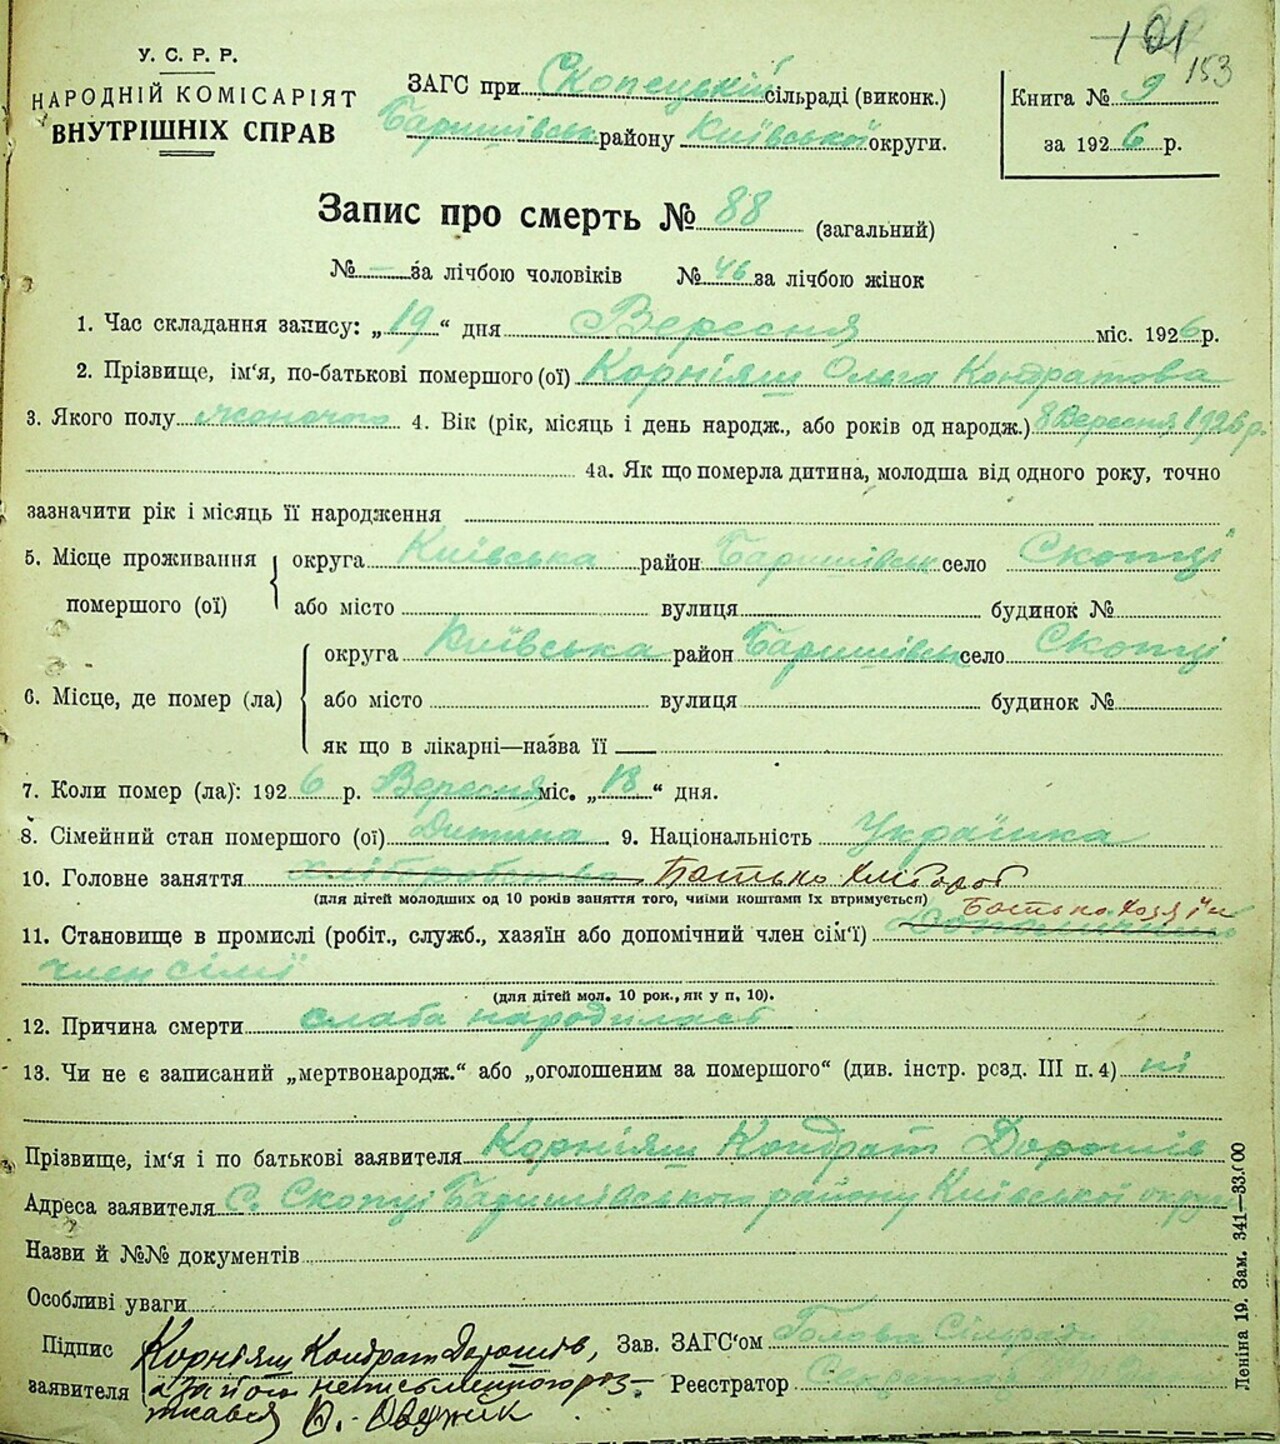 101
153
У. С. Р. Р.
НАРОДНІЙ КОМІСАРІЯТ
ВНУТРІШНІХ СПРАВ
ЗАГС при Скопецькій сільраді (виконк.)
Баришівськ району Київської округи.
Книга № 9
за 1926 р.
Запис про смерть № 88 (загальний)
№ — за лічбою чоловіків № 46 за лічбою жінок
1. Час складання запису: „19“ дня Вересня міс. 1926 р.
2. Прізвище, ім‘я, по-батькові помершого (ої) Корніяш Ольга Кондратова
3. Якого полу жоночого 4. Вік (рік, місяць і день народж., або років од народж.) 8 Вересня 1926 р.
4а. Як що померла дитина, молодша від одного року, точно
зазначити рік і місяць її народження
5. Місце проживання помершого (ої) округа Київська район Баришівськ село Скопці
або місто вулиця будинок №
6. Місце, де помер (ла) округа Київська район Баришівськ село Скопці
або місто вулиця будинок №
як що в лікарні—назва її —
7. Коли помер (ла): 1926 р. Вересня міс. „18“ дня.
8. Сімейний стан помершого (ої) Дитина 9. Національність Українка
10. Головне заняття хліборобство Батько Хлібороб
(для дітей молодших од 10 років заняття того, чиїми коштами їх втримується)
Батько хозяїн
11. Становище в промислі (робіт., служб., хазяїн або допомічний член сім‘ї) Допомічний
член сімї
(для дітей мол. 10 рок., як у п. 10).
12. Причина смерти слаба народилась
13. Чи не є записаний „мертвонародж.“ або „оголошеним за помершого“ (див. інстр. розд. III п. 4) ні
Прізвище, ім‘я і по батькові заявителя Корніяш Кондрат Дорошів
Адреса заявителя С. Скопці Баришівського району Київської округи
Назви й №№ документів
Особливі уваги
Підпис заявителя Корніяш Кондрат Дорошів,
а за його неписьменного роз-
писався
Зав. ЗАГС‘ом Голова Сільради
Реєстратор Секретар
Леніна 19. Зам. 341—83.000